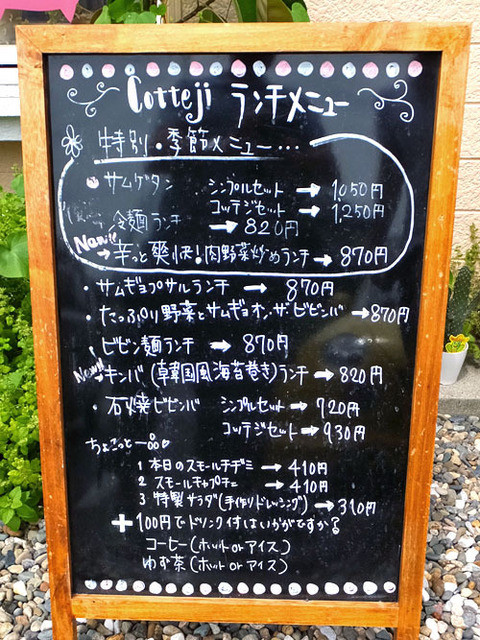 Cotteji ランチメニュー
特別・季節メニュー…
・サムゲタン シンプルセット → 1,050円
コッテジセット → 1,250円
冷麺ランチ → 820円
New!!
→辛っと爽快!肉野菜炒めランチ → 870円
・サムギョプサルランチ → 870円
・たっぷり野菜とサムギョオン・ザ・ビビンバ → 870円
・ビビン麺ランチ → 870円
New!!
→キンパ(韓国風海苔巻き)ランチ → 820円
・石焼ビビンバ シンプルセット → 720円
コッテジセット → 930円
ちょこっと一品♡
1 本日のスモールチヂミ → 410円
2 スモールチャプチェ → 410円
3 特製サラダ(手作りドレッシング) → 310円
+100円でドリンク付はいかがですかる
コーヒー(ホット or アイス)
ゆず茶(ホット or アイス)